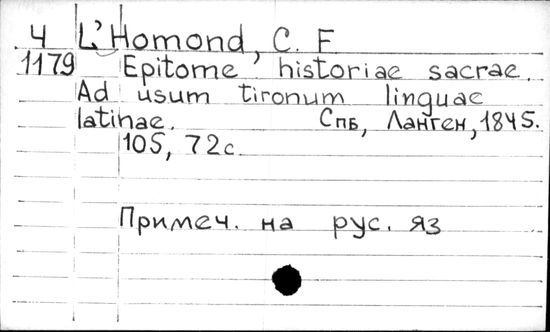 Ч L'Homond, C. F
1179 Epitome historiae sacrae.
Ad usum tironum linguae
latinae. Спб, Ланген, 1845.
105, 72с.
Примеч. на рус. яз